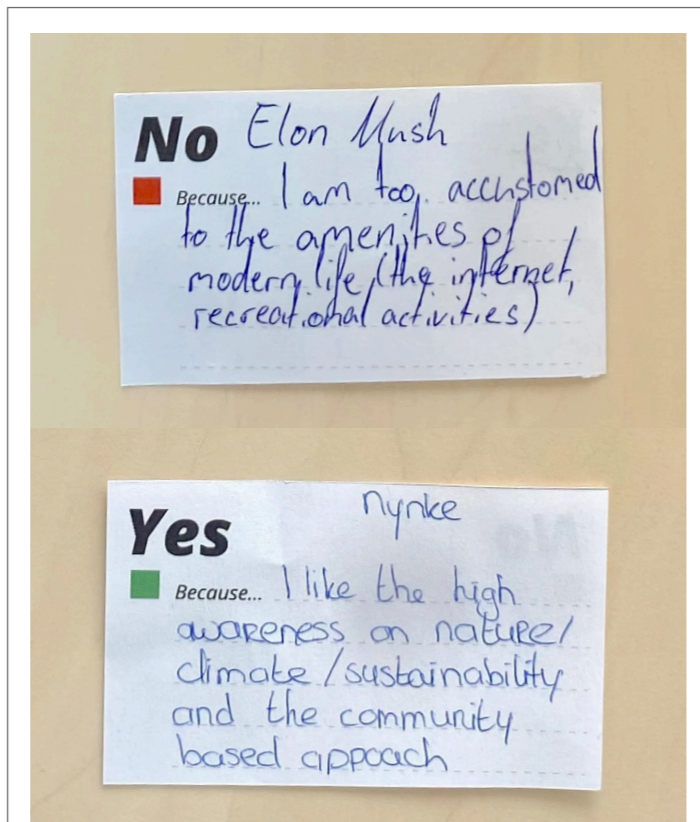 No Elon Mush
Because... I am too accustomed
to the amenities of
modern life (the internet,
recreational activities)
Yes nynke
Because... I like the high
awareness on nature/
climate/sustainability
and the community
based appoach